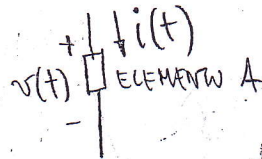 + i(t)
v(t) ELEMENTO A
-